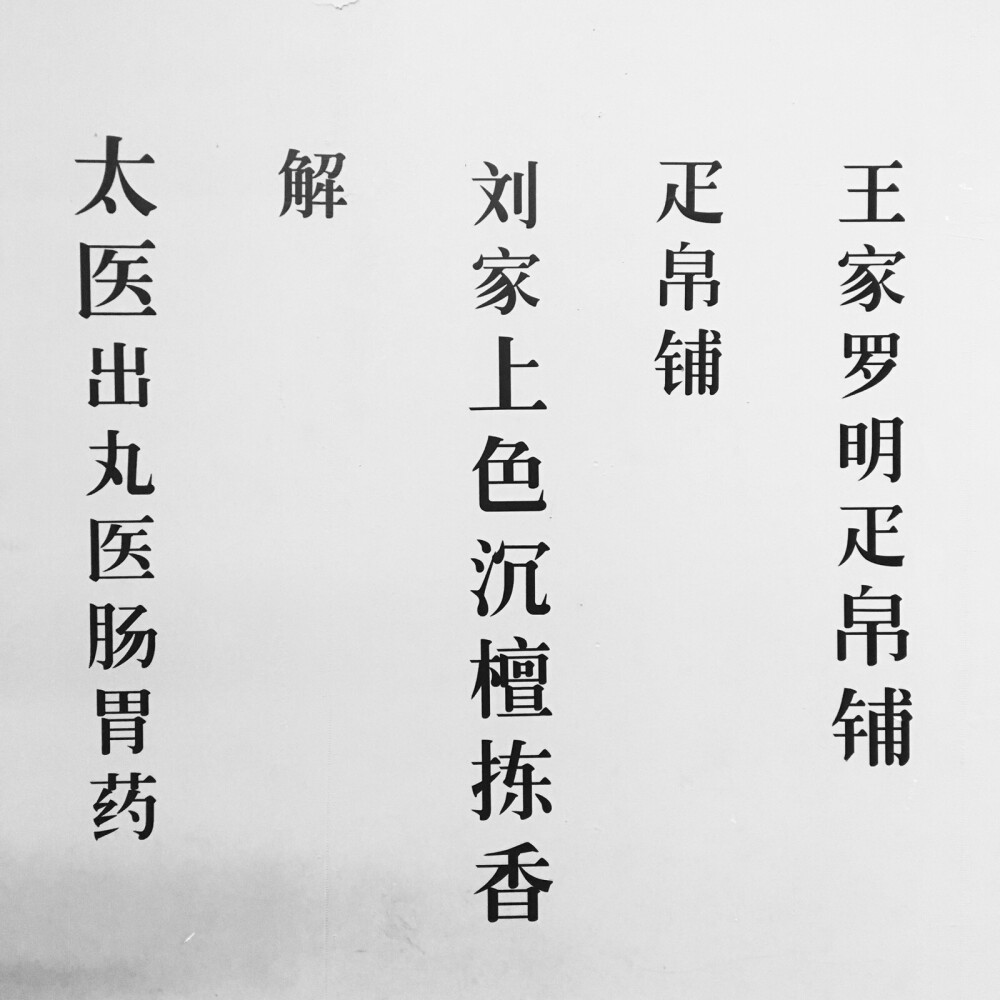 王家罗明疋帛铺
疋帛铺
刘家上色沉檀拣香
解
太医出丸医肠胃药